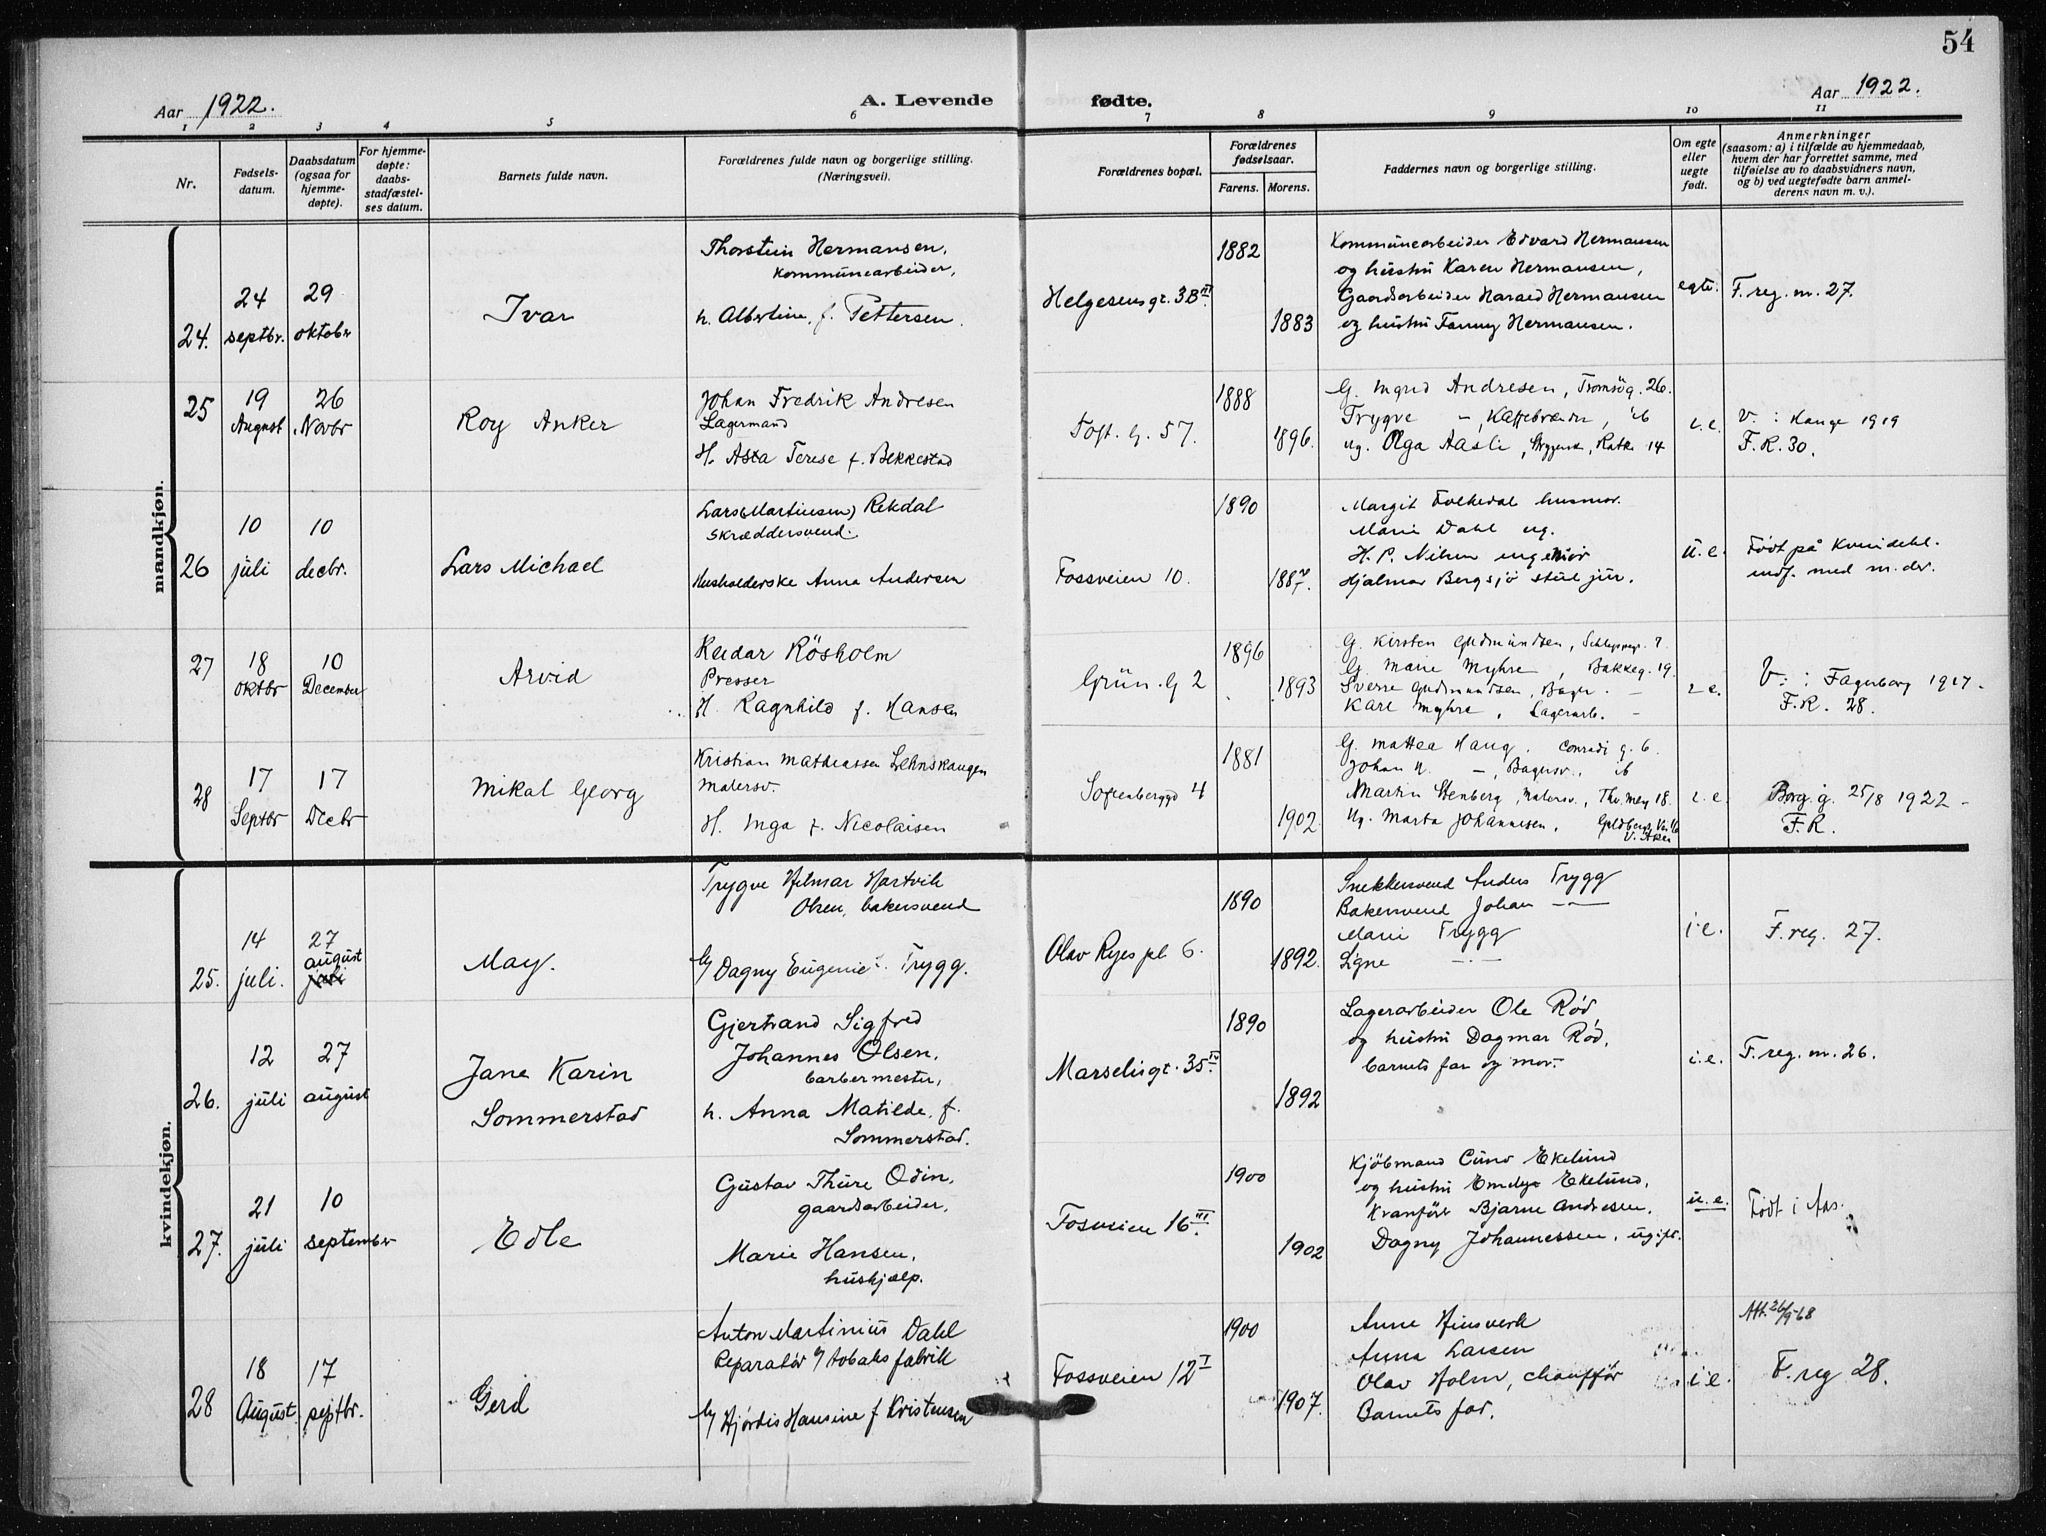 54
Aar 1922.
A. Levende fødte.
Aar 1922.
1 2 3 4 5 6 7 8 9 10 11
Nr.
Fødsels-
datum.
Daabsdatum
(ogsaa for
hjemme-
døpte).
For hjemme-
døpte:
daabs-
stadfæstel-
ses datum.
Barnets fulde navn.
Forældrenes fulde navn og borgerlige stilling.
(Næringsvei).
Forældrenes bopæl.
Forældrenes
fødselsaar.
Farens. Morens.
Faddernes navn og borgerlig stilling.
Om egte
eller
uegte
født.
Anmerkninger
(saasom: a) i tilfælde av hjemmedaab,
hvem der har forrettet samme, med
tilføielse av to daabsvidners navn,
og b) ved uegtefødte barn anmel-
derens navn m. v.).
mandkjøn.
24.
24
septbr.
29
oktober
Ivar
Thorstein Hermansen,
kommunearbeider,
h. Albertine, f. Pettersen.
Helgesens gt. 3B III
1882
1883
Kommunearbeider Edvard Hermansen
og hustru Karen Hermansen,
Gaardsarbeider Harald Hermansen
og hustru Fanny Hermansen.
egte.
F. reg. m. 27.
25
19
August
26
Novbr
Roy Anker
Johan Fredrik Andresen
Lagermand
H. Asta Terese f. Bekkestad
Toft. g. 57.
1888
1896.
G. Ingrid Andresen, Tromsög. 26.
Trygve — , Kaffebrænder, ib
ug. Olga Aasli, Rathk 14
i. e.
V. : Kauge 1919
F. R. 30.
26
10
juli
10
decbr.
Lars Michael
Lars (Martinsen) Rekdal
skræddersvend.
Husholderske Anna Andersen
Fossveien 10.
1890
1887.
Margit Folkedal husmor.
Marie Dahl ug.
H. P. Nilsen ingeniör
Hjalmar Bergsjö stud jur.
u. e.
Født på Kvindekl.
indf. med m. der.
27
18
oktbr
10
December
Arvid
Reidar Rösholm
Presser
H. Ragnhild f. Hansen
Grün. g 2
1896
1893
G. Kirsten Gudmundsen, 7
G. Marie Myhre, Bakkeg. 19.
Sverre Gudmundsen, Bager. —
Karl Myhre, Lagerarb. —
i. e.
V. : Fagerborg 1917.
F. R. 28.
28
17
Septbr
17
Decbr
Mikal Georg
Kristian Mathiassen Lehnskaugen
Malersv.
H. Inga f. Nicolaisen
Sofienberggd 4
1881
1902.
G. Mattea Haug. Conradi g. 6.
Johan H. —, Bagersv., ib
Martin Stenberg, Malersv., Thv. Mey. 18.
Ug. Marta Johannesen,
V. Aker
i. e.
Borg. g. 25/8 1922 –
F. R.
kvindekjøn.
25.
14
juli.
27
august
juli
May.
Trygve Hilmar Hartvik
Olsen, bakersvend
h/ Dagny Eugenie f. Trygg.
Olav Ryes pl 6.
1890
1892.
Snekkersvend Anders Trygg
Bakersvend Johan —"—
Marie Trygg
Signe —"—
i. e.
F. reg. 27.
26.
12
juli
27
august
Jane Karin
Sommerstad
Gjertrand Sigfred
Johannes Olsen,
barbermester,
h. Anna Matilde, f.
Sommerstad.
Marselisgt. 35 IV
1890
1892
Lagerarbeider Ole Rød,
og hustru Dagmar Rød,
barnets far og mor.
i. e.
F. reg. m. 26.
27.
21
juli
10
september
Edle
Gustav Thure Odin,
gaardsarbeider,
Marie Hansen,
hushjælp.
Fosveien 16 III
1900
1902
Kjöbmand Cuno Ekelund
og hustru Emely Ekelund,
Kranförer Bjarne Andresen,
Dagny Johannessen, ugift.
u. e.
Født i Aas.
28
18
August.
17
septbr.
Gerd
Anton Martinius Dahl
Reparatör v/ tobaksfabrik
h/ Hjördis Hansine f Kristensen
Fossveien 12 I
1900
1907.
Anne
Anna Larsen
Olav Holm, chaufför
Barnets far.
i e.
Att. 26/9-68
F. reg 28.